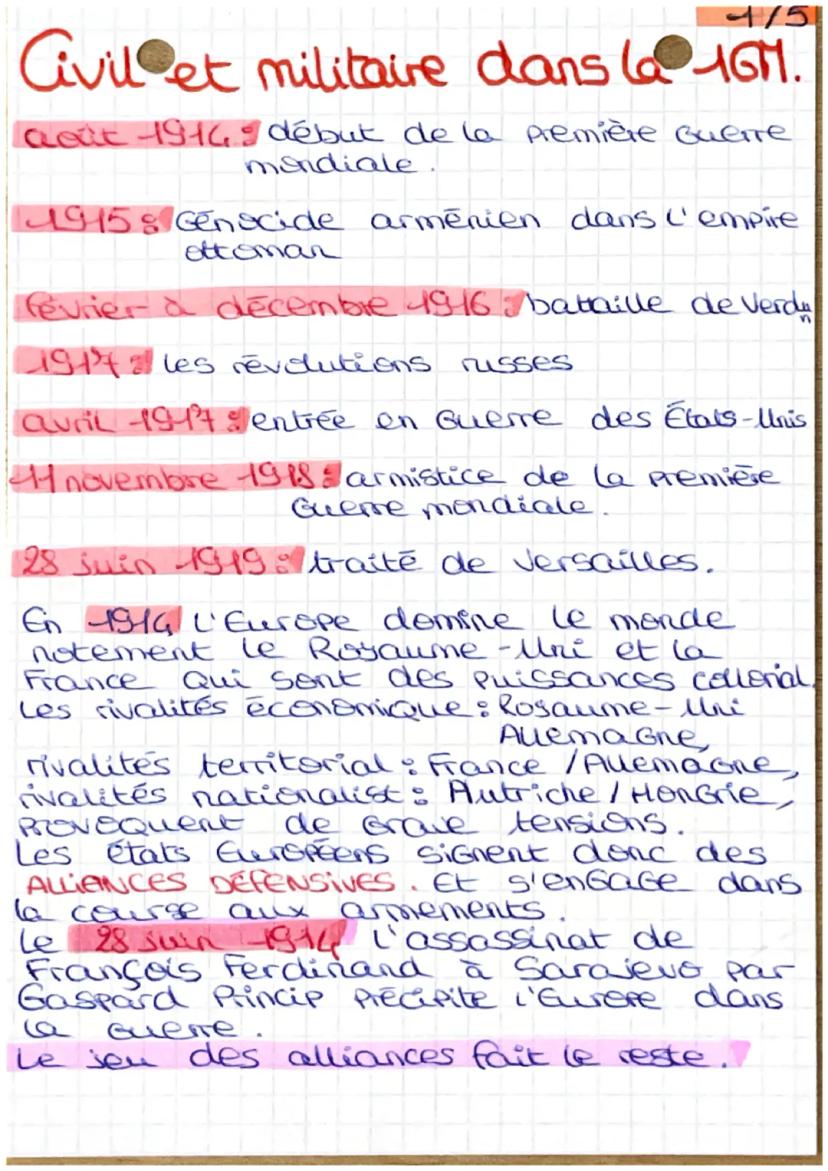 1/5
Civil et militaire dans la 1GM.
août 1914 : début de la première Guerre
mondiale.
1915 : Génocide arménien dans l'empire
ottoman
février à décembre 1916 : bataille de Verdun
1917 : les révolutions russes
avril 1917 : entrée en Guerre des États-Unis
11 novembre 1918 : armistice de la première
Guerre mondiale.
28 juin 1919 : traité de Versailles.
En 1914 l'Europe domine le monde
notement le Royaume-Uni et la
France qui sont des puissances collorial.
Les rivalités économique : Royaume-Uni
Allemagne,
rivalités territorial : France / Allemagne,
rivalités nationalist : Autriche / Hongrie,
provoquent de Grave tensions.
Les états Européens signent donc des
ALLIANCES DÉFENSIVES. Et s'engage dans
la course aux armements.
Le 28 juin 1914 l'assassinat de
François Ferdinand à Sarajevo par
Gaspard Princip précipite l'Europe dans
la Guerre.
Le jeu des alliances fait le reste.